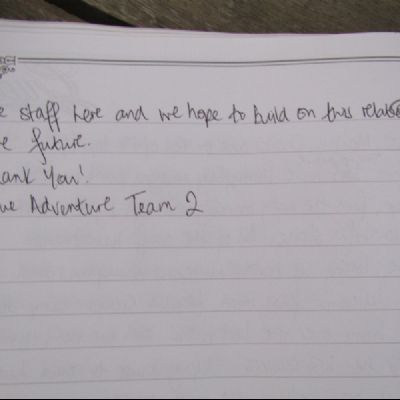 staff here and we hope to build on this
future.
You!
Adventure Team 2